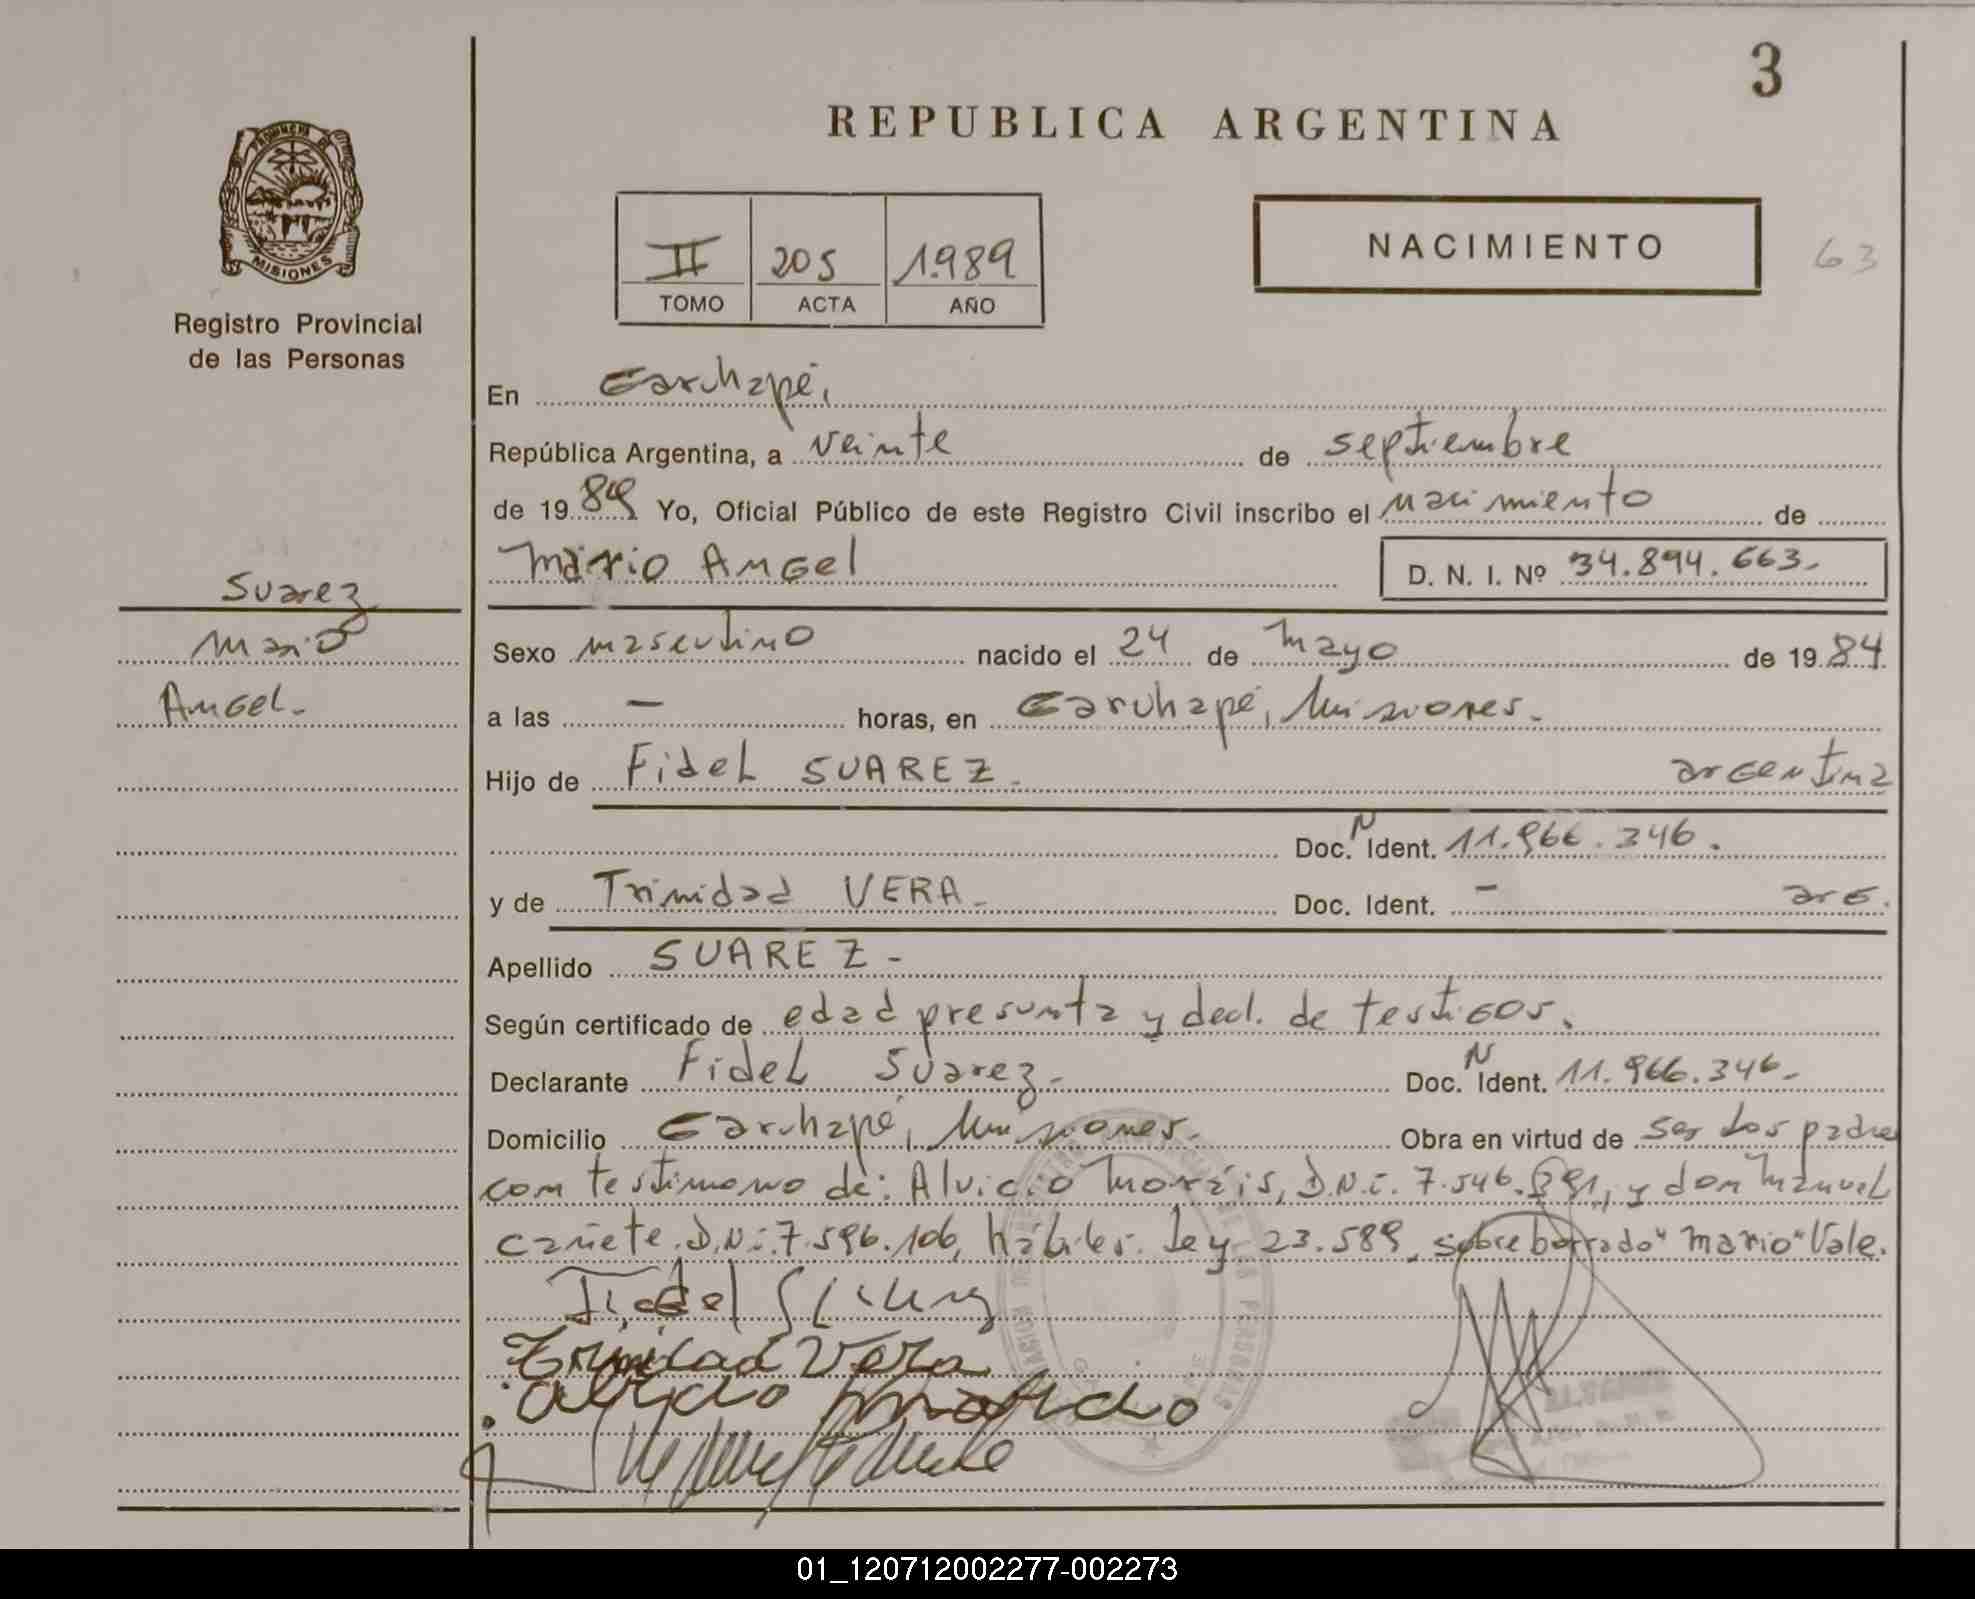 3
REPUBLICA ARGENTINA
PROVINCIA DE
MISIONES
Registro Provincial
de las Personas
II 205 1.989
TOMO ACTA AÑO
NACIMIENTO
63
En Garuhapé,
República Argentina, a veinte de septiembre
de 1989 Yo, Oficial Público de este Registro Civil inscribo el nacimiento de
Mario Angel D. N. I. Nº 34.894.663.-
Suarez
Mario
Angel.-
Sexo masculino nacido el 24 de Mayo de 1984
a las — horas, en Garuhapé, Misiones.-
Hijo de Fidel SUAREZ.- argentina
Doc. N Ident. 11.966.346.
y de Trinidad VERA.- Doc. Ident. - arg.
Apellido SUAREZ-
Según certificado de edad presunta y decl. de testigos.
Declarante Fidel Suarez.- Doc. N Ident. 11.966.346.-
Domicilio Garuhapé, Misiones.- Obra en virtud de ser los padre
con testimono de: Alvicio Moráis, D.N.i. 7.546. y don Manuel
cañete. D.N.i. 7.596.106, hábiles. Ley 23.589, sobre borrado "Mario" Vale.
Fidel
Trinidad Vera
01_120712002277-002273